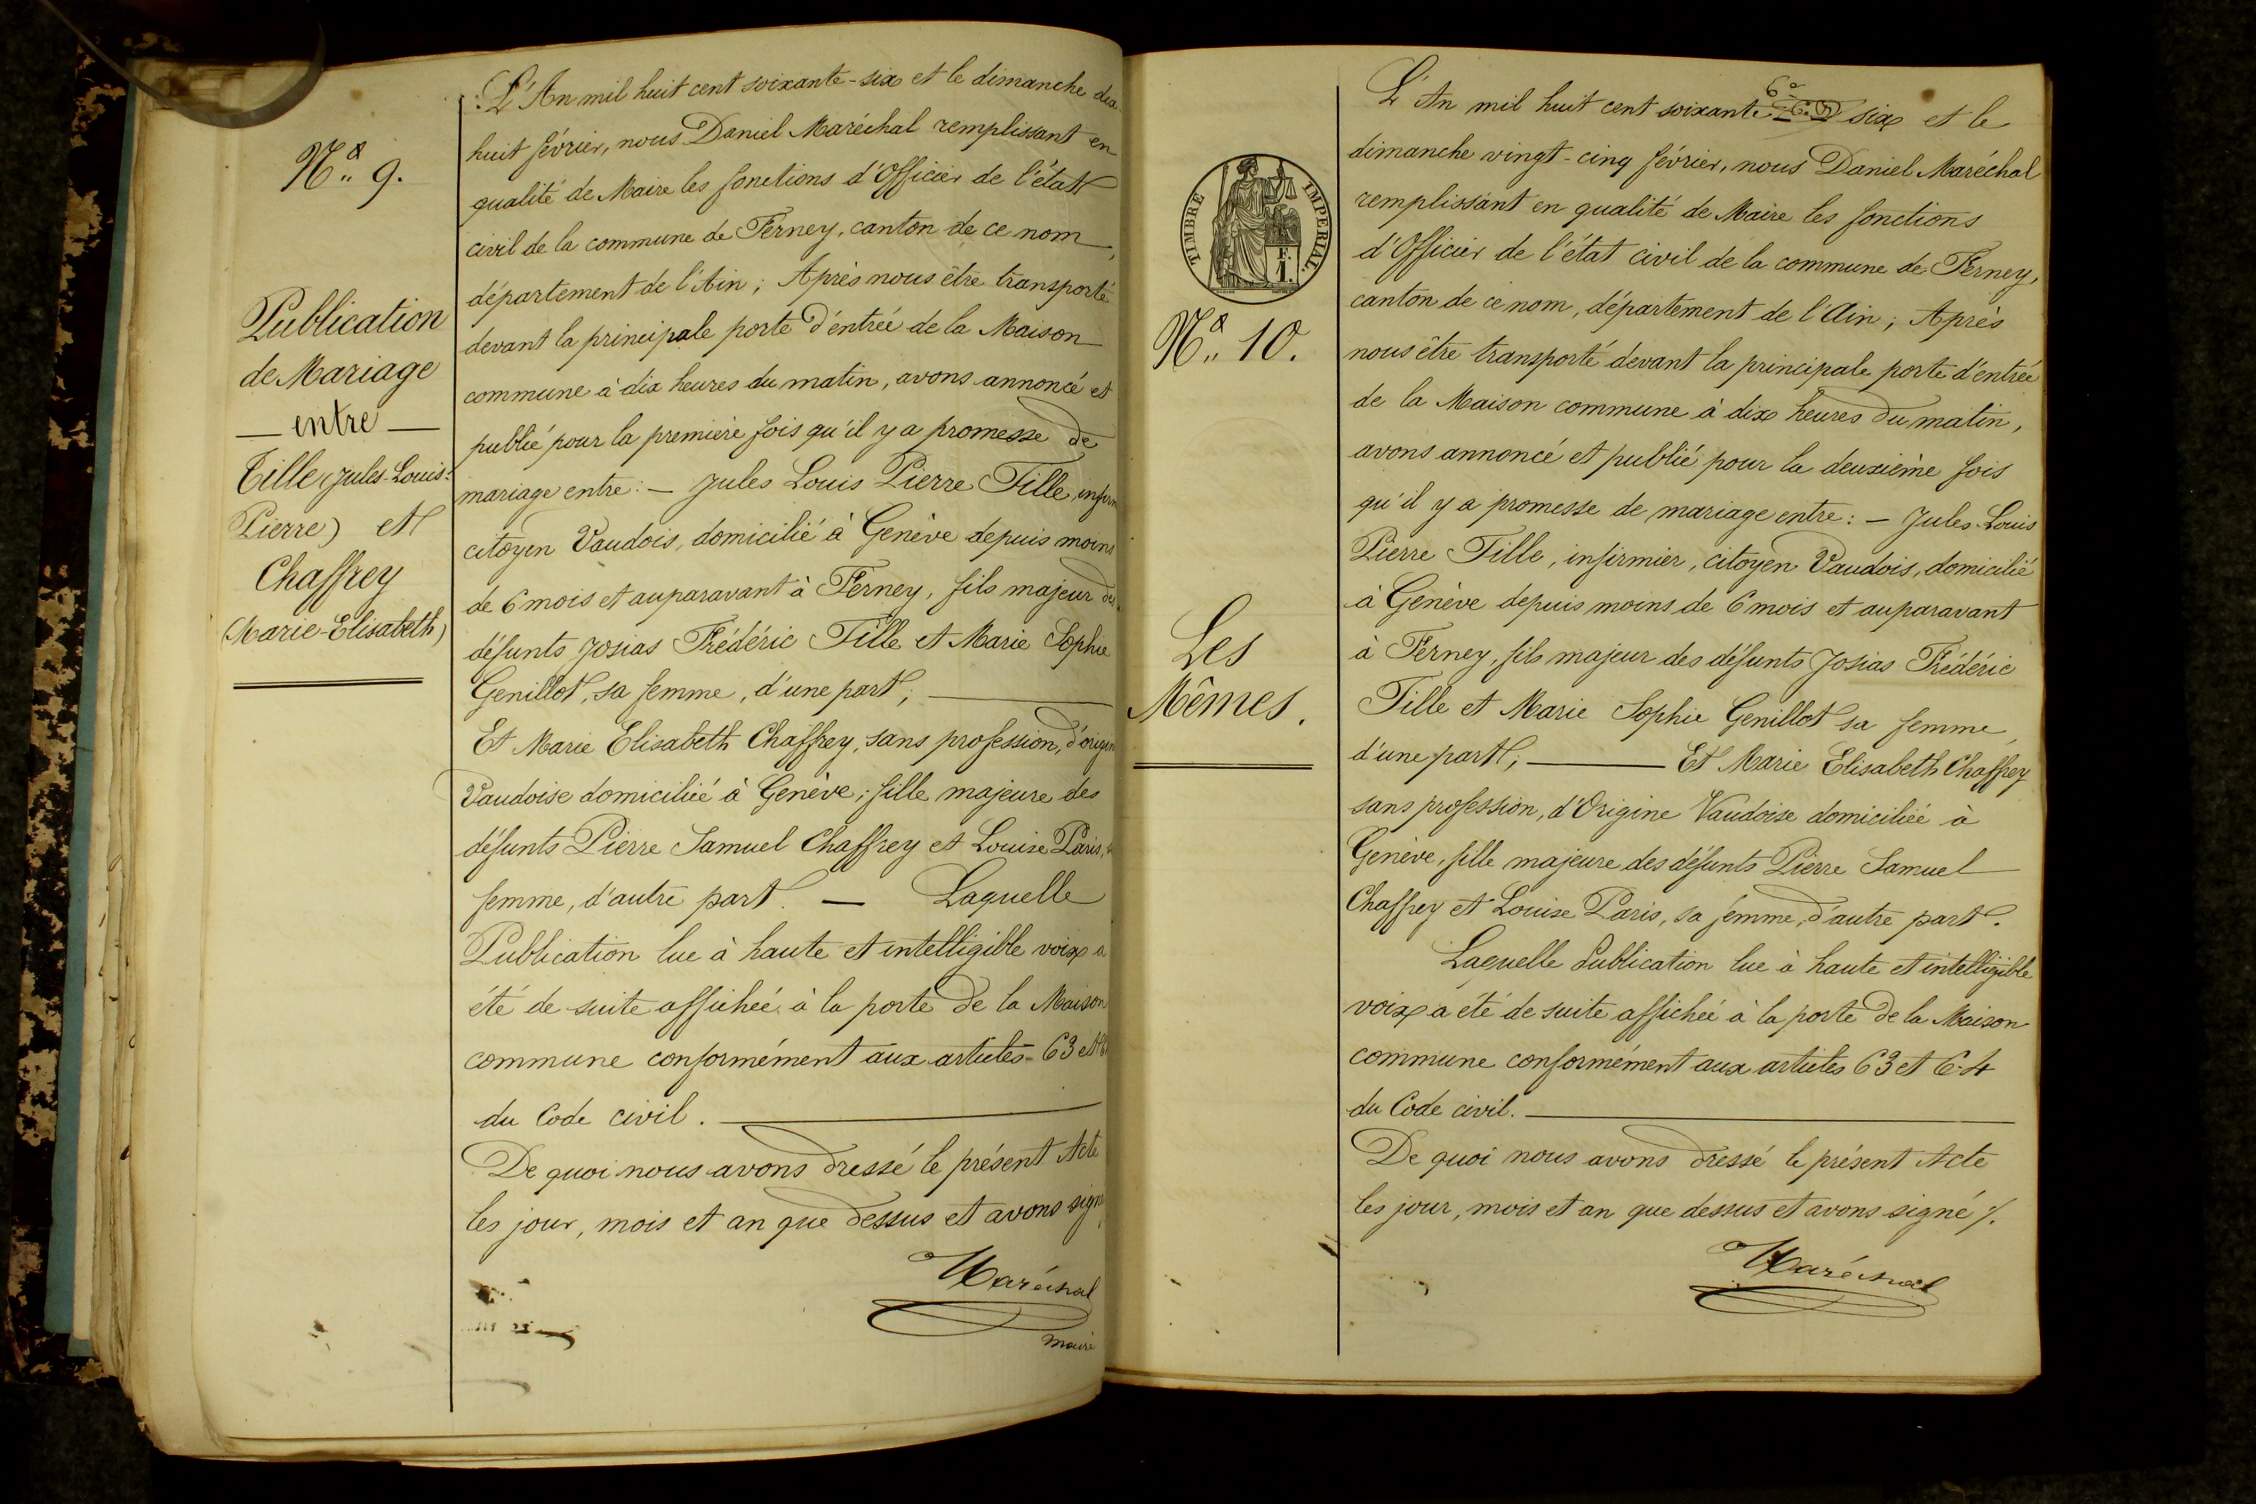 N.º 9.
Publication
de Mariage
— entre —
Tille (Jules-Louis-
Pierre) et
Chaffrey
(Marie-Elisabeth)
L'An mil huit cent soixante-six et le dimanche dix
huit février, nous Daniel Maréchal remplissant en
qualité de Maire les fonctions d'Officier de l'état
civil de la commune de Ferney, canton de ce nom,
département de l'Ain ; Après nous être transporté
devant la principale porte d'entrée de la Maison
commune à dix heures du matin, avons annoncé et
publié pour la première fois qu'il y a promesse de
mariage entre : — Jules Louis Pierre Tille,
citoyen Vaudois, domicilié à Genève depuis moins
de 6 mois et auparavant à Ferney, fils majeur des
défunts Josias Frédéric Tille et Marie Sophie
Genillot, sa femme, d'une part ; —
Et Marie Elisabeth Chaffrey, sans profession, d'origine
Vaudoise domiciliée à Genève ; fille majeure des
défunts Pierre Samuel Chaffrey et Louise Paris,
femme, d'autre part. — Laquelle
Publication lue à haute et intelligible voix a
été de suite affichée à la porte de la Maison
commune conformément aux articles 63 et
du Code civil. —
De quoi nous avons dressé le présent Acte
les jour, mois et an que dessus et avons signé
Maréchal
maire
TIMBRE IMPERIAL.
F.
1.
N.º 10.
Les
Mêmes.
6º
L'An mil huit cent soixante six et le
dimanche vingt-cinq février, nous Daniel Maréchal
remplissant en qualité de Maire les fonctions
d'Officier de l'état civil de la commune de Ferney,
canton de ce nom, département de l'Ain ; Après
nous être transporté devant la principale porte d'entrée
de la Maison commune à dix heures du matin,
avons annoncé et publié pour la deuxième fois
qu'il y a promesse de mariage entre : — Jules Louis
Pierre Tille, infirmier, citoyen Vaudois, domicilié
à Genève depuis moins de 6 mois et auparavant
à Ferney, fils majeur des défunts Josias Frédéric
Tille et Marie Sophie Genillot sa femme,
d'une part ; — Et Marie Elisabeth Chaffrey
sans profession, d'Origine Vaudoise domiciliée à
Genève, fille majeure des défunts Pierre Samuel
Chaffrey et Louise Paris, sa femme, d'autre part.
Laquelle Publication lue à haute et intelligible
voix a été de suite affichée à la porte de la Maison
commune conformément aux articles 63 et 64
du Code civil. —
De quoi nous avons dressé le présent Acte
les jour, mois et an que dessus et avons signé /.
Maréchal